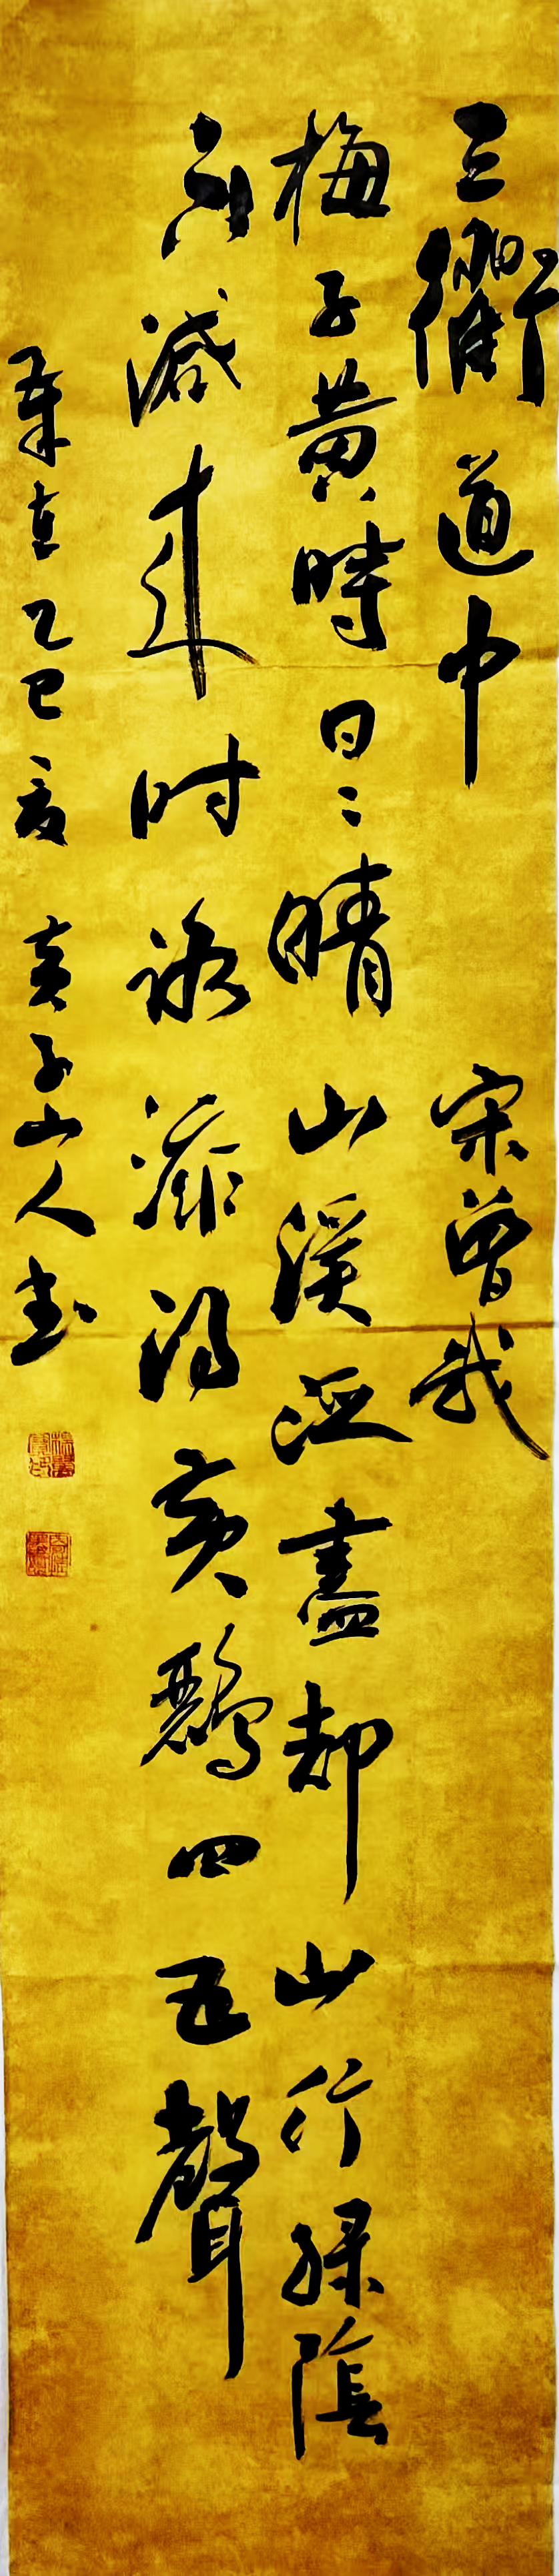 三衢道中 宋曾幾
梅子黄時日〻晴山溪泛盡却山行緑陰
不減来时路添得黄鸝四五聲
在乙巳夏 黄子山人书